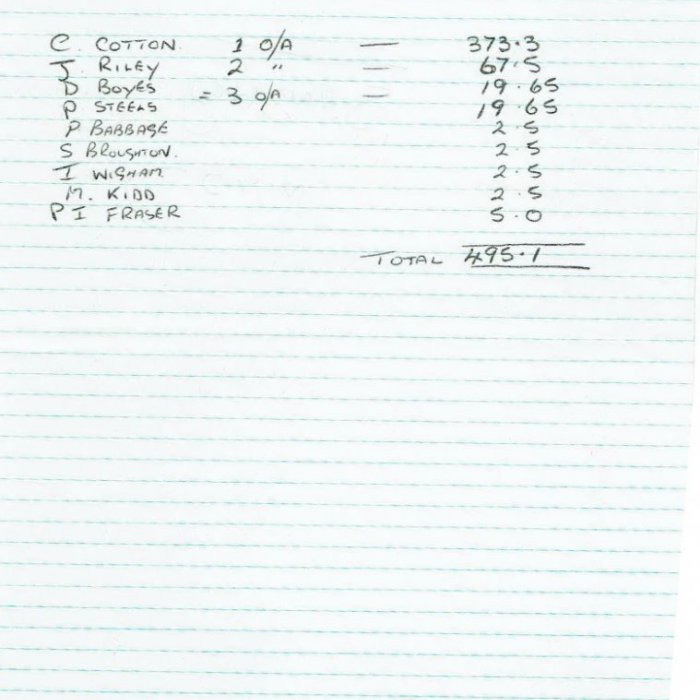 C. COTTON. 1 O/A — 373.3
J. RILEY 2 " — 67.5
D BOYES = 3 O/A — 19.65
P STEELS 19.65
P BABBAGE 2.5
S BROUGHTON. 2.5
I WIGHAM 2.5
M. KIDD 2.5
P I FRASER 5.0
TOTAL 495.1